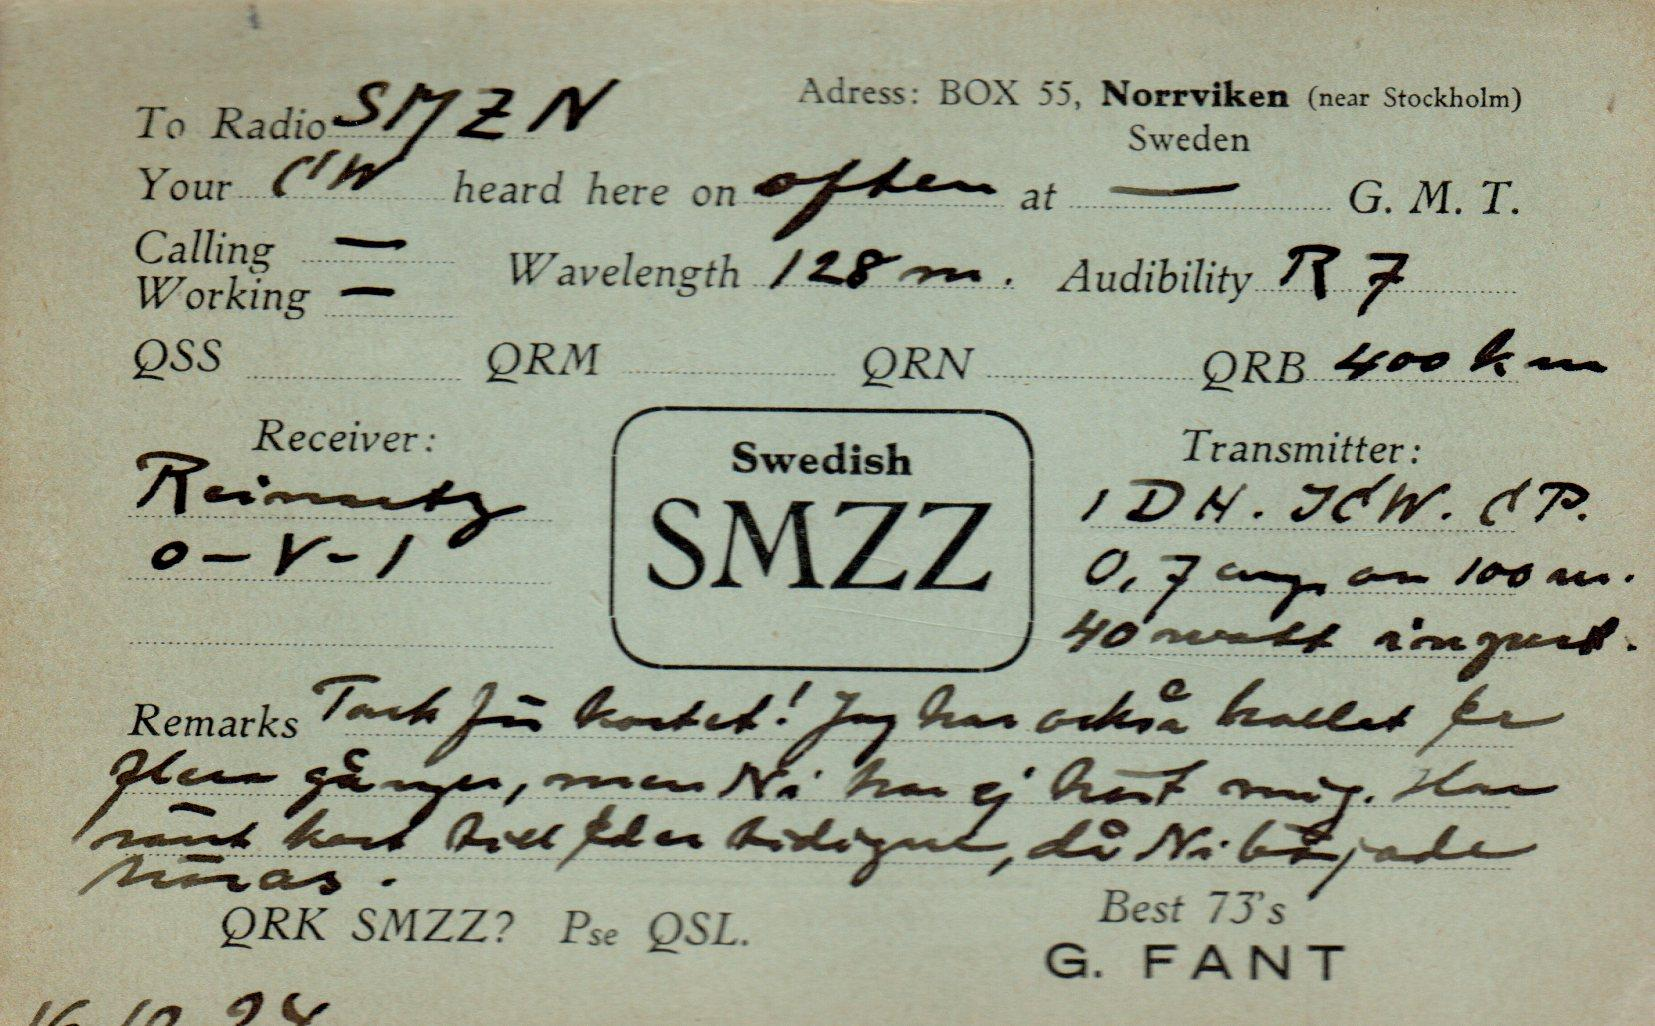 To Radio SMZN
Adress: BOX 55, Norrviken (near Stockholm)
Sweden
Your CW heard here on often at — G. M. T.
Calling —
Working —
Wavelength 128 m. Audibility R 7
QSS QRM QRN QRB 400 km
Receiver:
Reinartz
0-V-1
Swedish
SMZZ
Transmitter:
1 DH. ICW. CP.
0,7 amp. on 100 m.
40 watt input.
Remarks Tack för kortet! Jag har också kallat Er
flera gånger, men Ni har ej hört mig. Har
sänt kort till Eder tidigare, då Ni började
höras.
QRK SMZZ? Pse QSL.
Best 73's
G. FANT
16.10.24